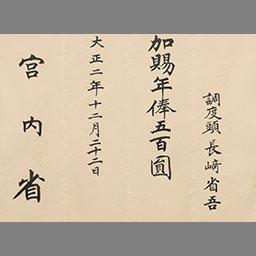 調度頭長﨑省吾
加賜年俸五百圓
大正二年十二月二十二日
宮内省